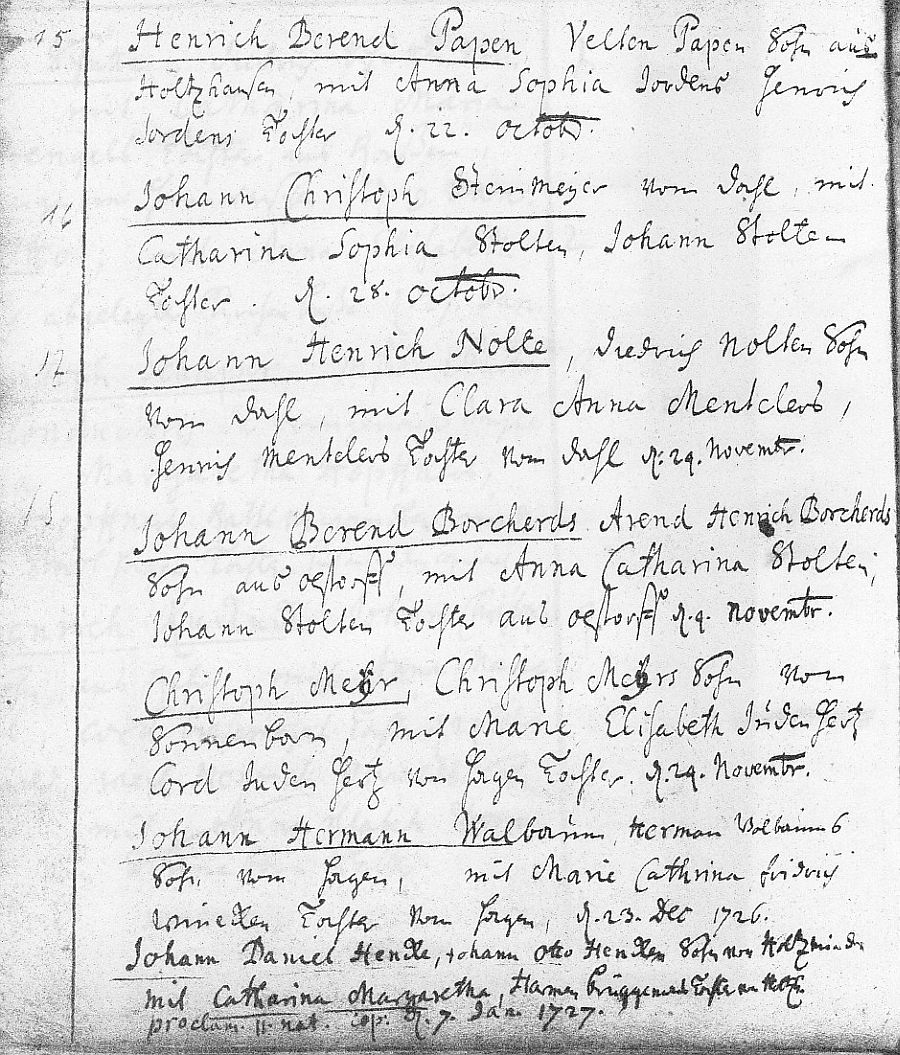 15 Henrich Berend Papen Velten Papen Sohn aus
Holtzhausen, mit Anna Sophia Jordens Henrich
Jordens Tochter d. 22. octobr.
16 Johann Christoph Steinmeyer vom dahl, mit
Catharina Sophia Stolten, Johann Stolten
Tochter d. 28. octobr.
17 Johann Henrich Nolte, diedrich Nolten Sohn
vom dahl, mit Clara Anna Mentclers,
Henrich Mentclers Tochter vom dahl d. 29. Novembr.
18 Johann Berend Borcherds Arend Henrich Borcherds
Sohn aus oestorff, mit Anna Catharina Stolten,
Johann Stolten Tochter aus oestorff d. 9. Novembr.
Christoph Meyer, Christoph Meyers Sohn von
Sonnenborn, mit Marie Elisabeth Inden
Cord Inden von Hagen Tochter. d. 29. Novembr.
Johann Hermann Walbaum, Herman Walbaums
Sohn vom Hagen, mit Marie Cathrina fridrich
Tochter vom Hagen, d. 23. Dec 1726.
Johann Daniel Hencke, Johann Otto Hencken Sohn von Holtzminden
mit Catharina Margaretha, Harmen Tochter
proclam. 11. nat. cop. d. 7. Jan. 1727.